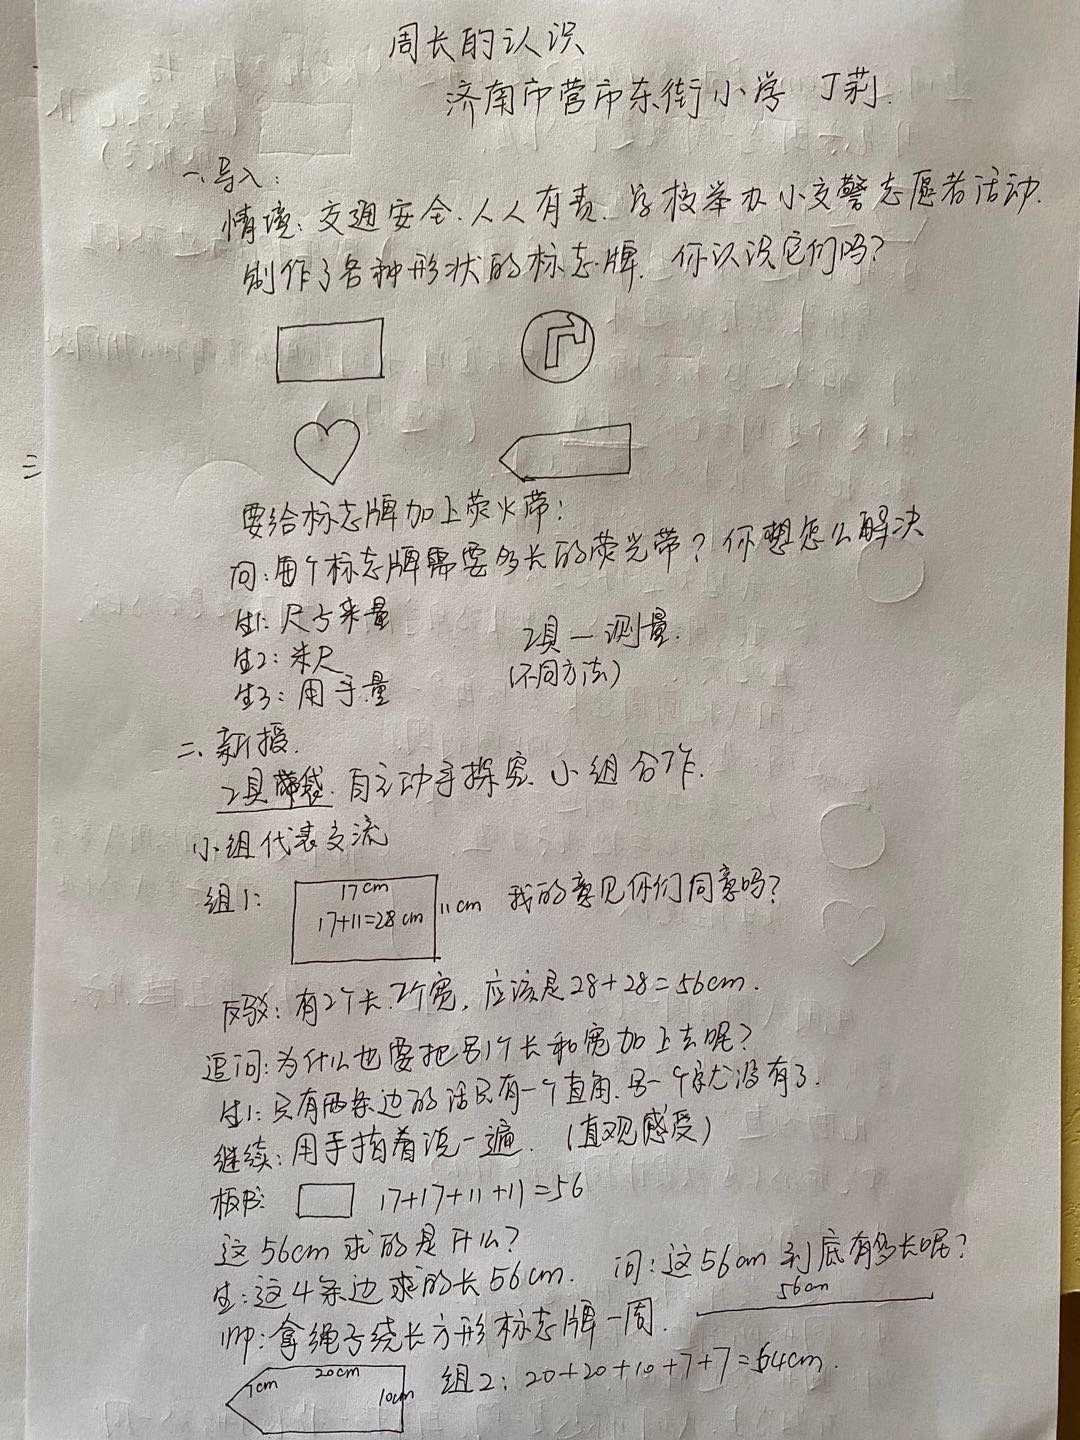 周长的认识
济南市营市东街小学 丁莉.
一、导入:
情境:交通安全.人人有责.学校举办小交警志愿者活动.
制作了各种形状的标志牌.你认识它们吗?
三
要给标志牌加上荧火带:
问:每个标志牌需要多长的荧光带?你想怎么解决
生1:尺子来量
生2:米尺
生3:用手量
工具—测量.
(不同方法)
二、新授.
工具袋.自主动手探究.小组合作.
小组代表交流
组1:
17cm
17+11=28cm
11cm
我的意见你们同意吗?
反驳:有2个长.2个宽,应该是28+28=56cm.
追问:为什么也要把另1个长和宽加上去呢?
生1:只有两条边的话只有一个直角.另一个就没有了.
继续:用手指着说一遍.(直观感受)
板书: 17+17+11+11=56
这56cm求的是什么?
生:这4条边求的长56cm. 问:这56cm到底有多长呢?
56cm
师:拿绳子绕长方形标志牌一周.
7cm
20cm
10cm
组2:20+20+10+7+7=64cm.